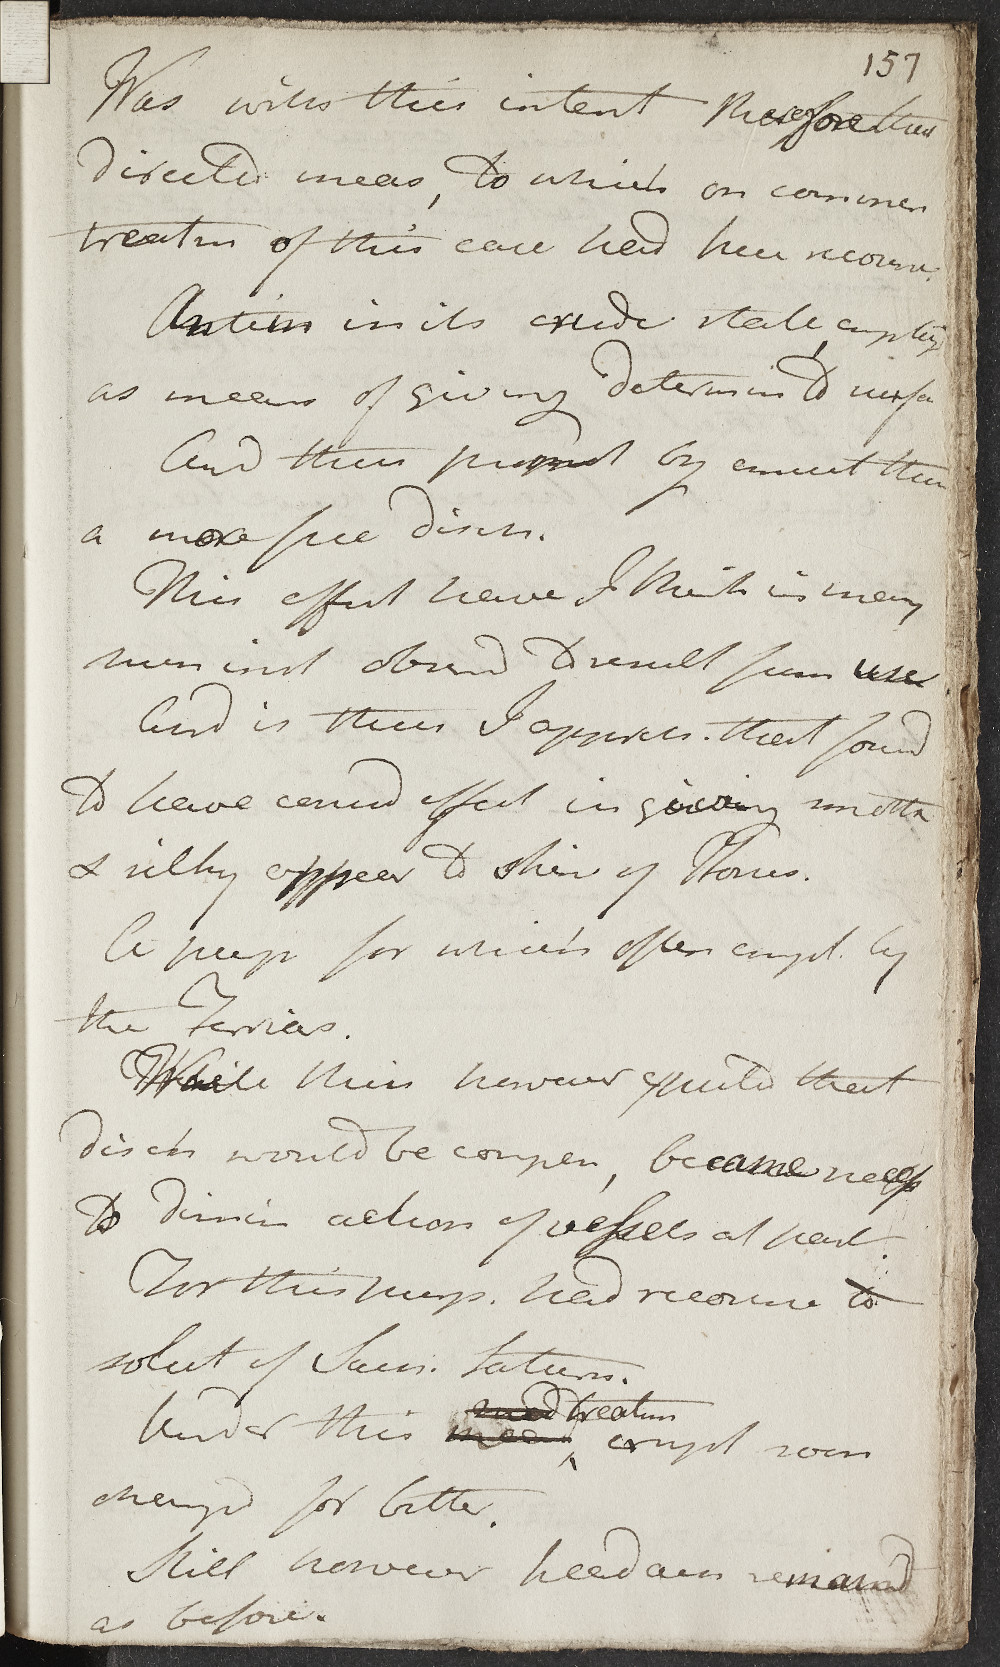 157
Was with this intent therefore thus
directed meas, to which on common
treatm of this case had been recourse.
Antim in its crude state, employ
as means of giving determin to surfa
And thus promot by cunict there
a more free disch.
This effect have I think in many
inst observd to result from use
And is thus I appreh. that found
to have effect in giving smooth
& silky appear to skin of Horses.
A purp for which often empl. by
the Farriers.
While this however expected that
disch would be compen, became necess
to dimin action of vessels at part.
For this purp. had recourse to
solut of Sacc. Saturn.
med treatm
Under this erupt soon
changd for better.
Still however headach remaind
as before.